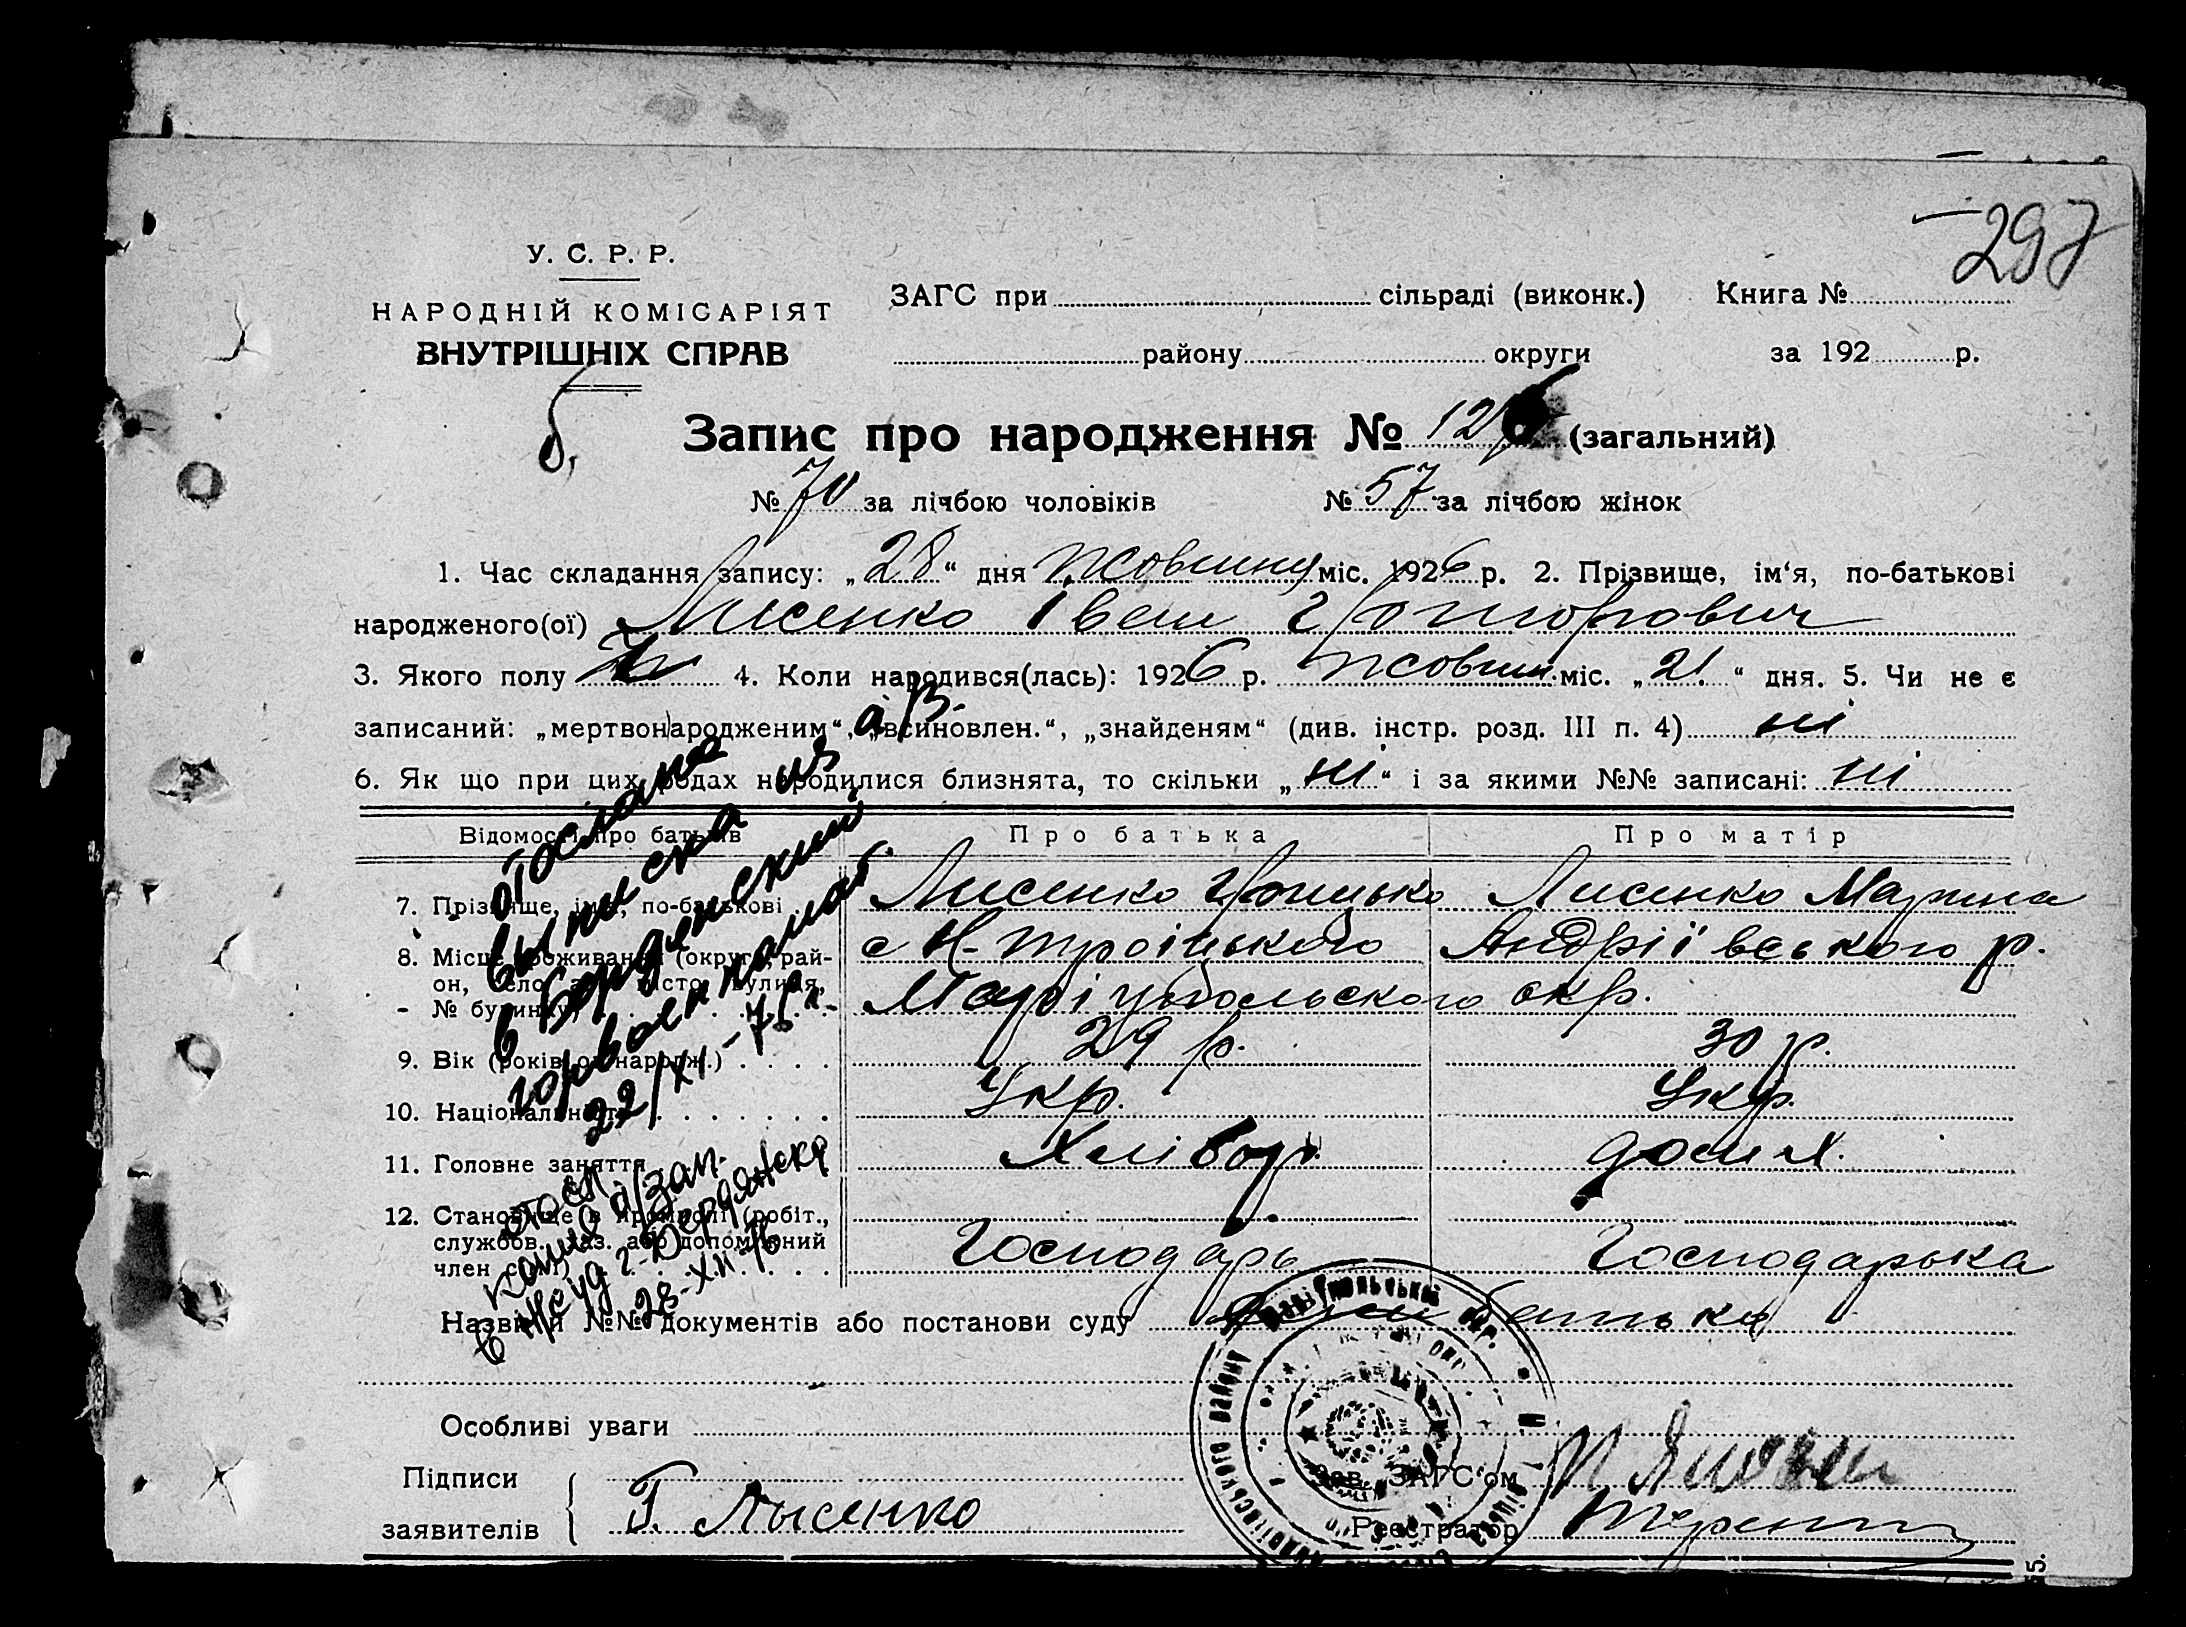 297
У. С. Р. Р.
НАРОДНІЙ КОМІСАРІЯТ
ВНУТРІШНІХ СПРАВ
ЗАГС при сільраді (виконк.) Книга №
району округи за 192 р.
Запис про народження № 12 (загальний)
№ 70 за лічбою чоловіків № 57 за лічбою жінок
1. Час складання запису: „28“ дня жовтню міс. 1926 р. 2. Прізвище, ім‘я, по-батькові
народженого(ої) Лисенко Іван Григорович
3. Якого полу 4. Коли народився(лась): 1926 р. жовтн. міс. „21.“ дня. 5. Чи не є
записаний: „мертвонародженим“, „всиновлен.“, „знайденям“ (див. інстр. розд. III п. 4) ні
6. Як що при цих родах народилися близнята, то скільки „ні“ і за якими №№ записані: ні
Відомості про батьків Про батька Про матір
7. Прізвище, ім‘я, по-батькові Лисенко Грицько Лисенко Марина
8. Місце проживання (округа, рай-
он, село або місто, вулиця,
№ будинку)
с Н-Троїцького Андріївського р.
Маріупольского окр.
9. Вік (років од народж.) 29 р. 30 р.
10. Національність Укр. Укр.
11. Головне заняття Хлібор. дом.х.
12. Становище в промислі (робіт.,
службов., хаз. або допоміжний
член сім‘ї) Господарь Господарька
Назви й №№ документів або постанови суду батька
Особливі уваги
Підписи
заявителів
Г. Лысенко
Зав. ЗАГС‘ом
Реєстратор
отослана
выписка из а/з.
в Бердянский
горвоенкомат.
22/XI-76 г.
отосл.
копия а/зап.
в нсуд г. Бердянска
28-XII-76